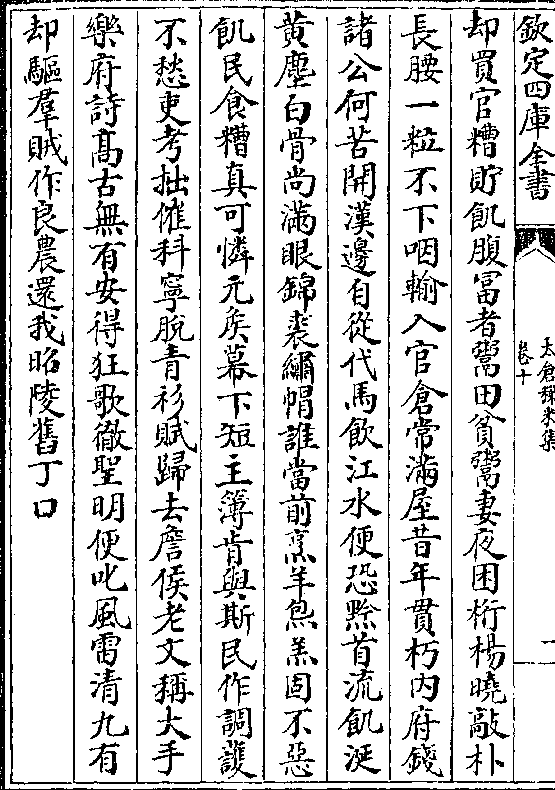 欽定四庫全書
太倉稊米集
卷十
一
却買官糟貯飢腹富者鬻田貧鬻妻夜困桁楊曉敲朴
長腰一粒不下咽輸入官倉常滿屋昔年貫朽内府錢
諸公何苦開漢邊自從代馬飲江水便恐黔首流飢涎
黄塵白骨尚滿眼錦裘繡帽誰當前烹羊炰羔固不惡
飢民食糟真可憐元矦幕下短主簿肯與斯民作調護
不愁吏考拙催科寧脫青衫賦歸去詹侯老文稱大手
樂府詩髙古無有安得狂歌徹聖明便叱風雷清九有
却驅羣賊作良農還我昭陵舊丁口